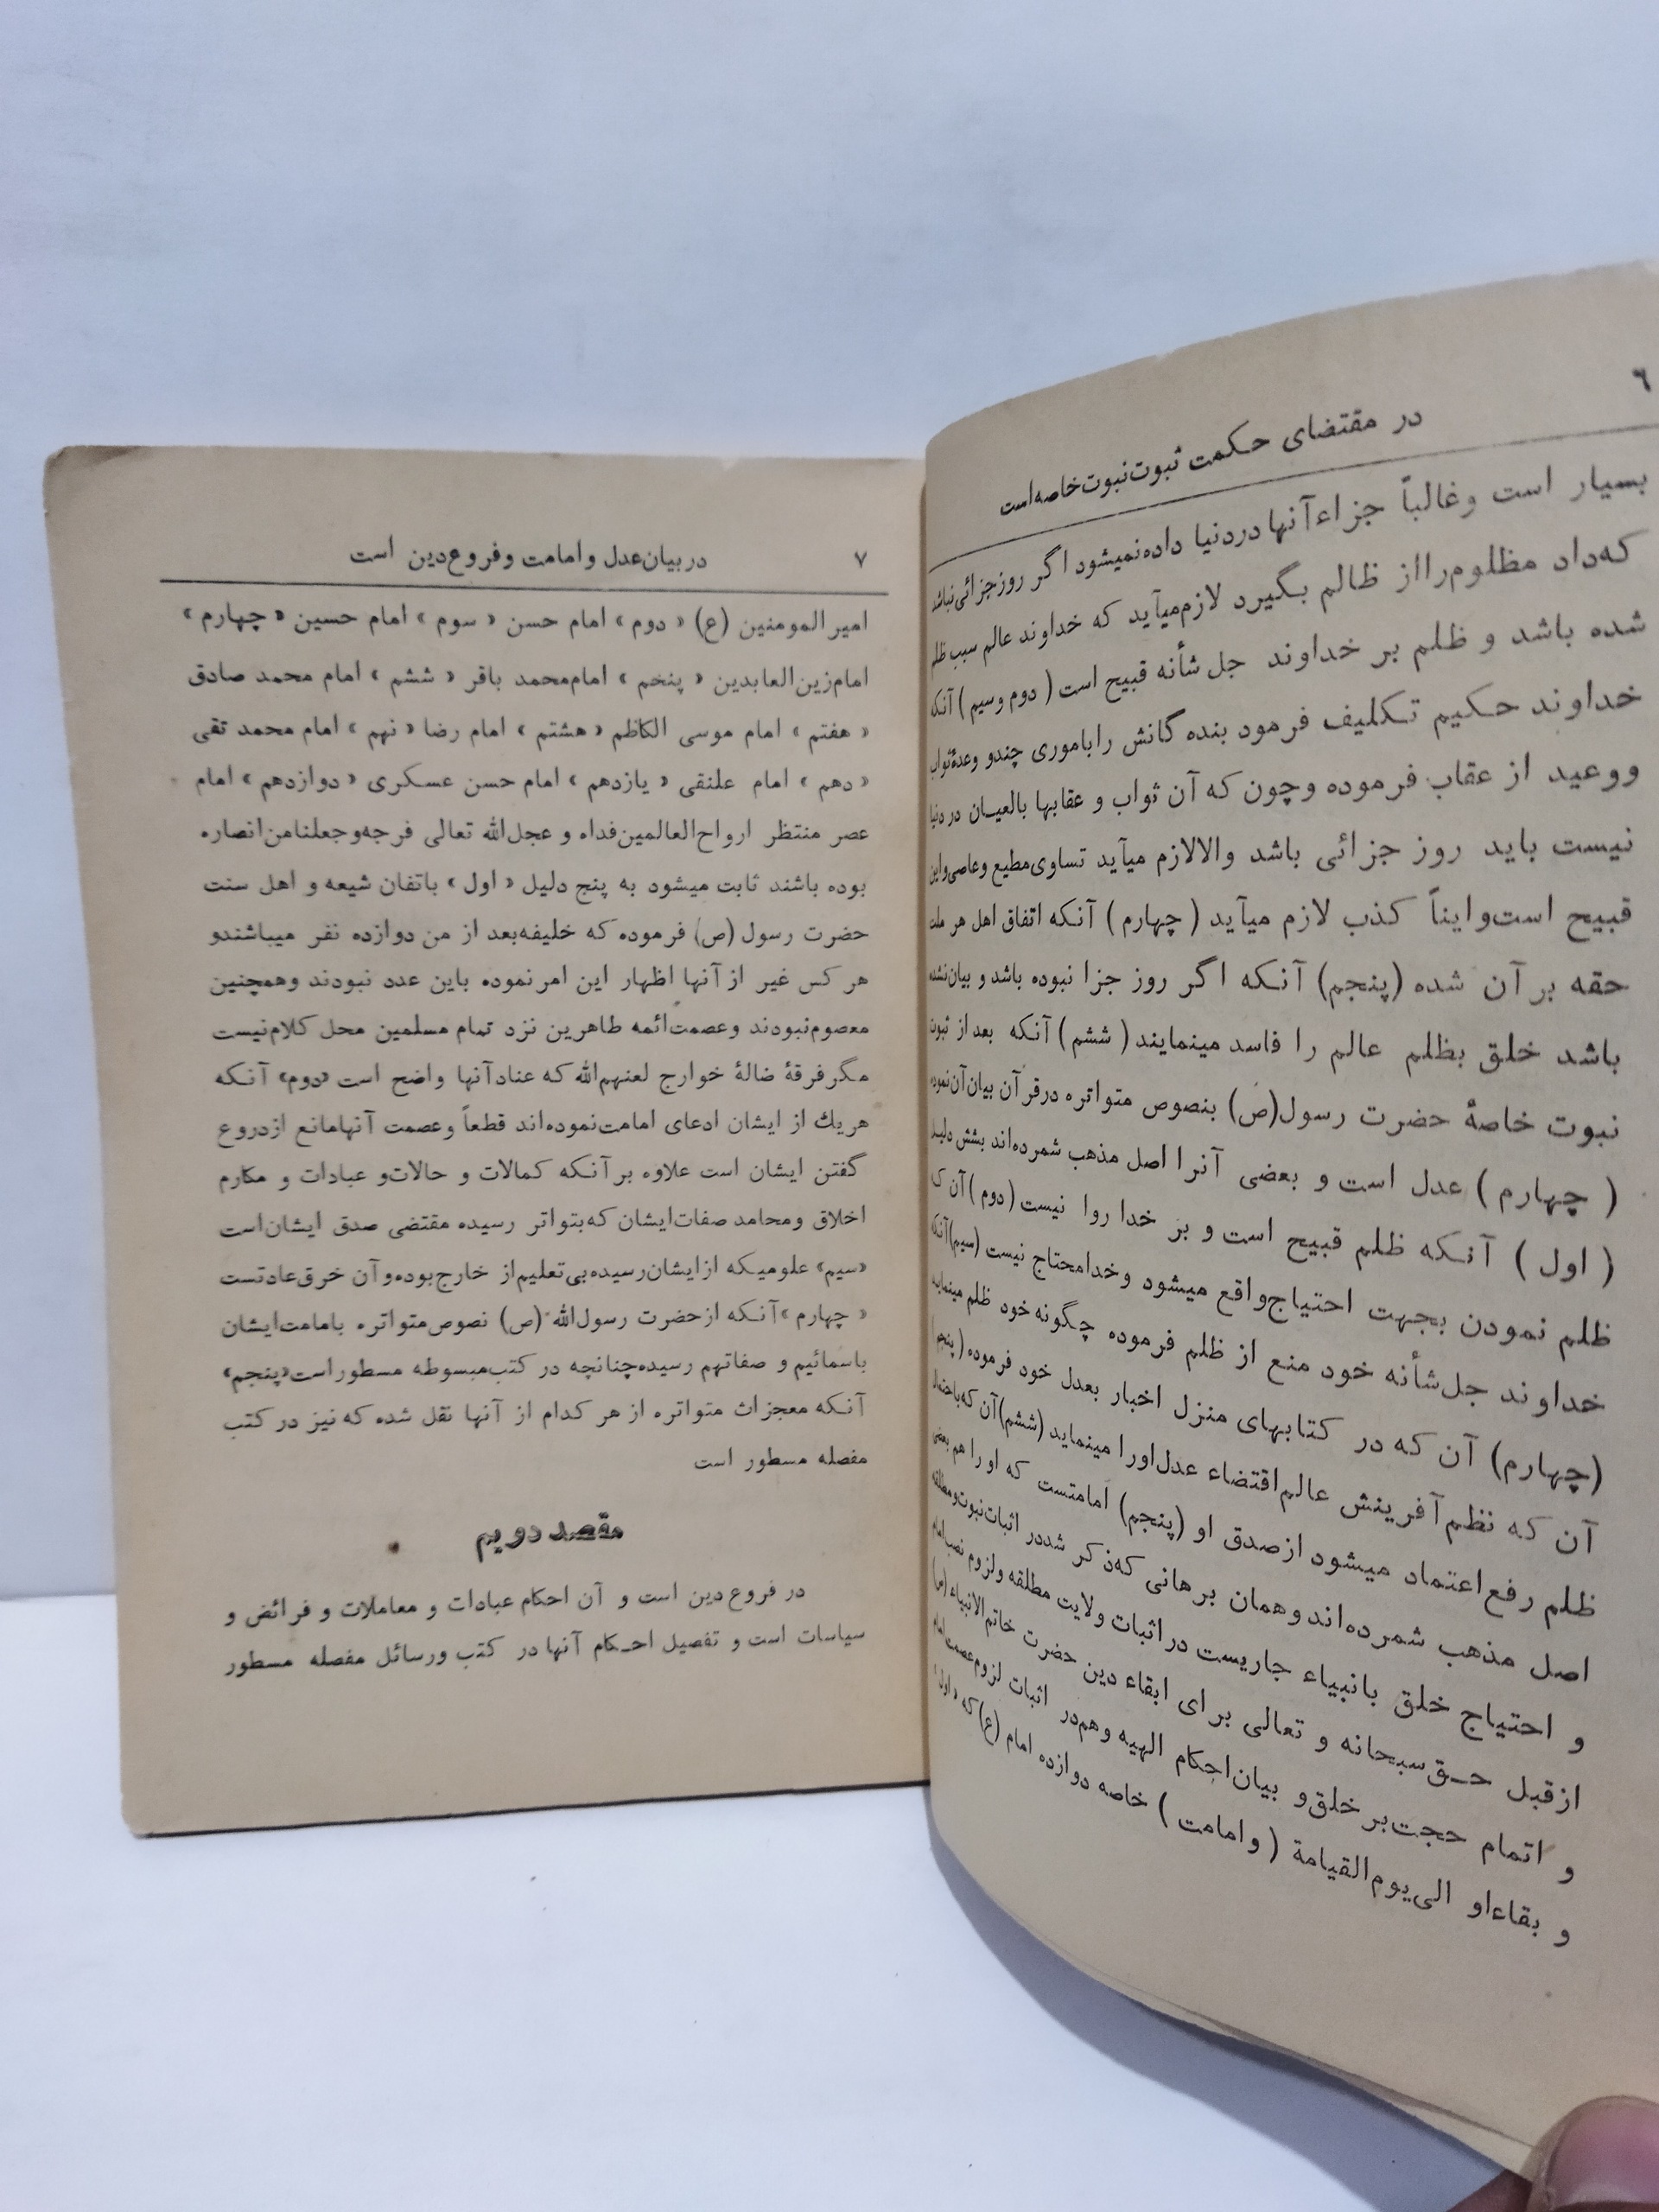 ٦
در مقتضای حکمت ثبوت نبوت خاصه است
بسیار است وغالباً جزاء آنها دردنیا داده نمیشود اگر روز جزائی نباشد
که داد مظلوم را از ظالم بگیرد لازم میآید که خداوند عالم سبب ظلم
شده باشد و ظلم بر خداوند جل شأنه قبیح است ( دوم وسیم ) آنکه
خداوند حکیم تکلیف فرمود بنده گانش را باموری چند و وعدۀ ثواب
ووعید از عقاب فرموده وچون که آن ثواب و عقابها بالعیان در دنیا
نیست باید روز جزائی باشد والالازم میآید تساوی مطیع وعاصی واین
قبیح است وایناً کذب لازم میآید ( چهارم ) آنکه اتفاق اهل هر ملت
حقه بر آن شده (پنجم) آنکه اگر روز جزا نبوده باشد و بیان نشده
باشد خلق بظلم عالم را فاسد مینمایند ( ششم ) آنکه بعد از ثبوت
نبوت خاصۀ حضرت رسول(ص) بنصوص متواتره درقرآن بیان آن نموده
( چهارم ) عدل است و بعضی آنرا اصل مذهب شمرده اند بشش دلیل
( اول ) آنکه ظلم قبیح است و بر خدا روا نیست ( دوم ) آن که
ظلم نمودن بجهت احتیاج واقع میشود وخدامحتاج نیست (سیم) آنکه
خداوند جل شأنه خود منع از ظلم فرموده چگونه خود ظلم مینماید
(چهارم) آن که در کتابهای منزل اخبار بعدل خود فرموده (پنجم)
آن که نظم آفرینش عالم اقتضاء عدل اورا مینماید (ششم) آن که باحتمال
ظلم رفع اعتماد میشود ازصدق او (پنجم) امامتست که او را هم بعضی
اصل مذهب شمرده اند وهمان برهانی که ذکر شددر اثبات نبوت ومطلقه
و احتیاج خلق بانبیاء جاریست در اثبات ولایت مطلقه ولزوم نصب امام
ازقبل حق سبحانه و تعالی برای ابقاء دین حضرت خاتم الانبیاء (ص)
و اتمام حجت بر خلق و بیان احکام الهیه وهم در اثبات لزوم عصمت امام
و بقاء او الی یوم القیامة ( وامامت ) خاصه دوازده امام (ع) که « اول »
٧
در بیان عدل و امامت و فروع دین است
امیر المومنین (ع) « دوم » امام حسن « سوم » امام حسین « چهارم »
امام زین العابدین « پنخم » امام محمد باقر « ششم » امام محمد صادق
« هفتم » امام موسی الکاظم « هشتم » امام رضا « نهم » امام محمد تقی
« دهم » امام علنقی « یازدهم » امام حسن عسکری « دوازدهم » امام
عصر منتظر ارواح العالمین فداه و عجل الله تعالی فرجه و جعلنا من انصاره
بوده باشند ثابت میشود به پنج دلیل « اول » باتفان شیعه و اهل سنت
حضرت رسول (ص) فرموده که خلیفه بعد از من دوازده نفر میباشندو
هر کس غیر از آنها اظهار این امر نموده باین عدد نبودند وهمچنین
معصوم نبودند وعصمت ائمه طاهرین نزد تمام مسلمین محل کلام نیست
مگر فرقۀ ضالۀ خوارج لعنهم الله که عناد آنها واضح است «دوم» آنکه
هریك از ایشان ادعای امامت نموده اند قطعاً وعصمت آنهامانع ازدروع
گفتن ایشان است علاوه بر آنکه کمالات و حالات و عبادات و مکارم
اخلاق ومحامد صفات ایشان که بتواتر رسیده مقتضی صدق ایشان است
«سیم» علومیکه از ایشان رسیده بی تعلیم از خارج بوده و آن خرق عادتست
« چهارم » آنکه از حضرت رسول الله (ص) نصوص متواتره بامامت ایشان
باسمائیم و صفاتهم رسیده چنانچه در کتب مبسوطه مسطور است «پنجم»
آنکه معجزات متواتره از هر کدام از آنها نقل شده که نیز در کتب
مفصله مسطور است
مقصد دویم
در فروع دین است و آن احکام عبادات و معاملات و فرائض و
سیاسات است و تفصیل احکام آنها در کتب ورسائل مفصله مسطور